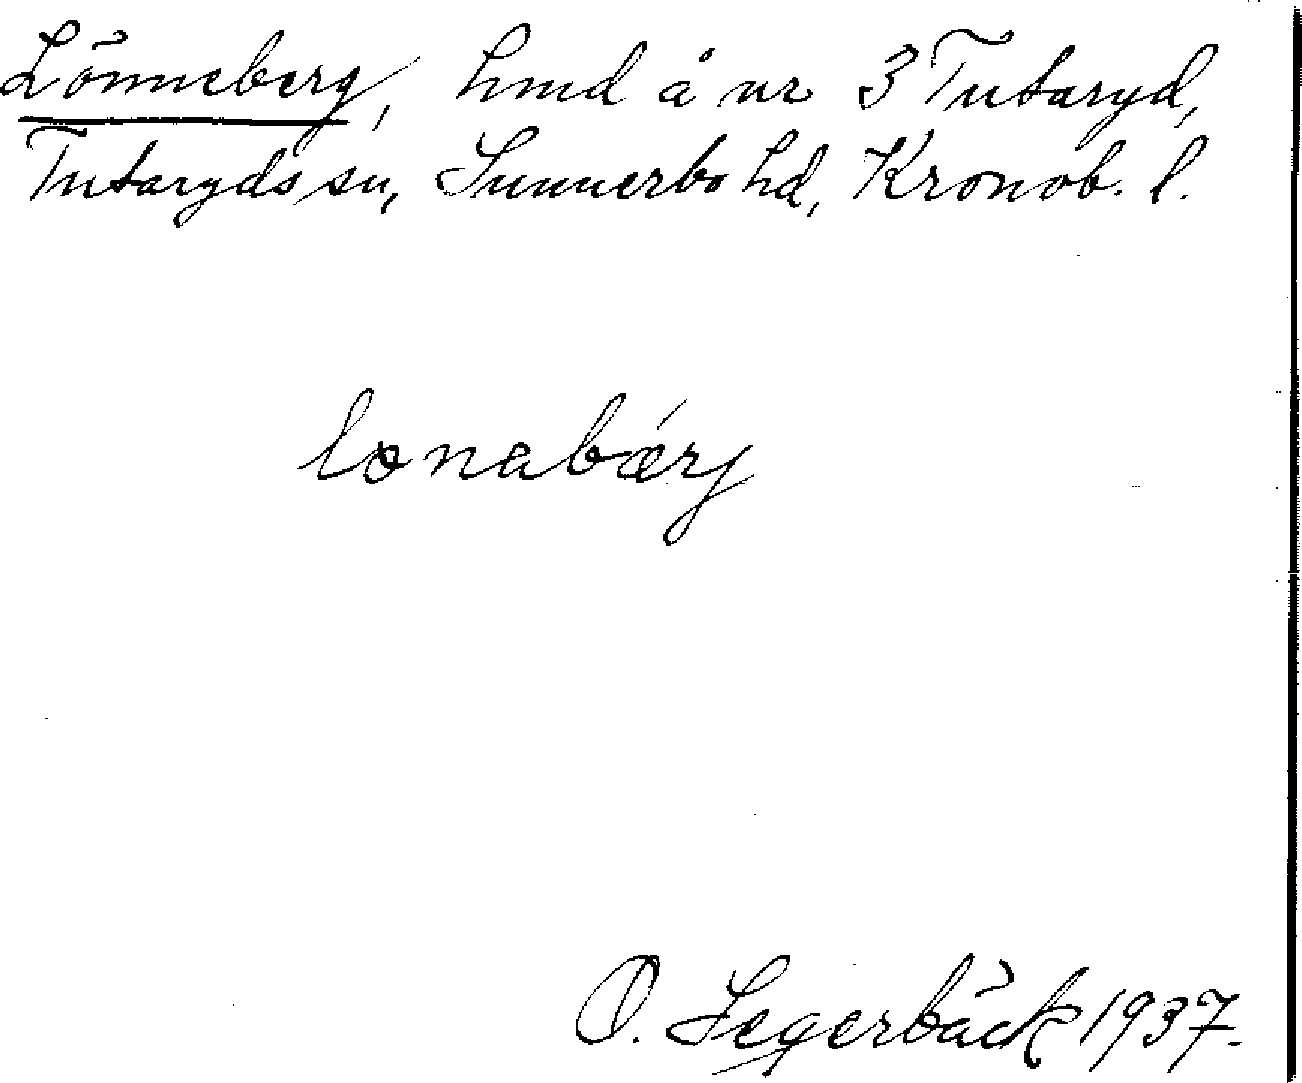 Lönneberg, hmd å nr 3 Tutaryd,
Tutaryds sn, Sunnerbo hd, Kronob. l.
lønabǽrj
O. Segerbäck 1937.